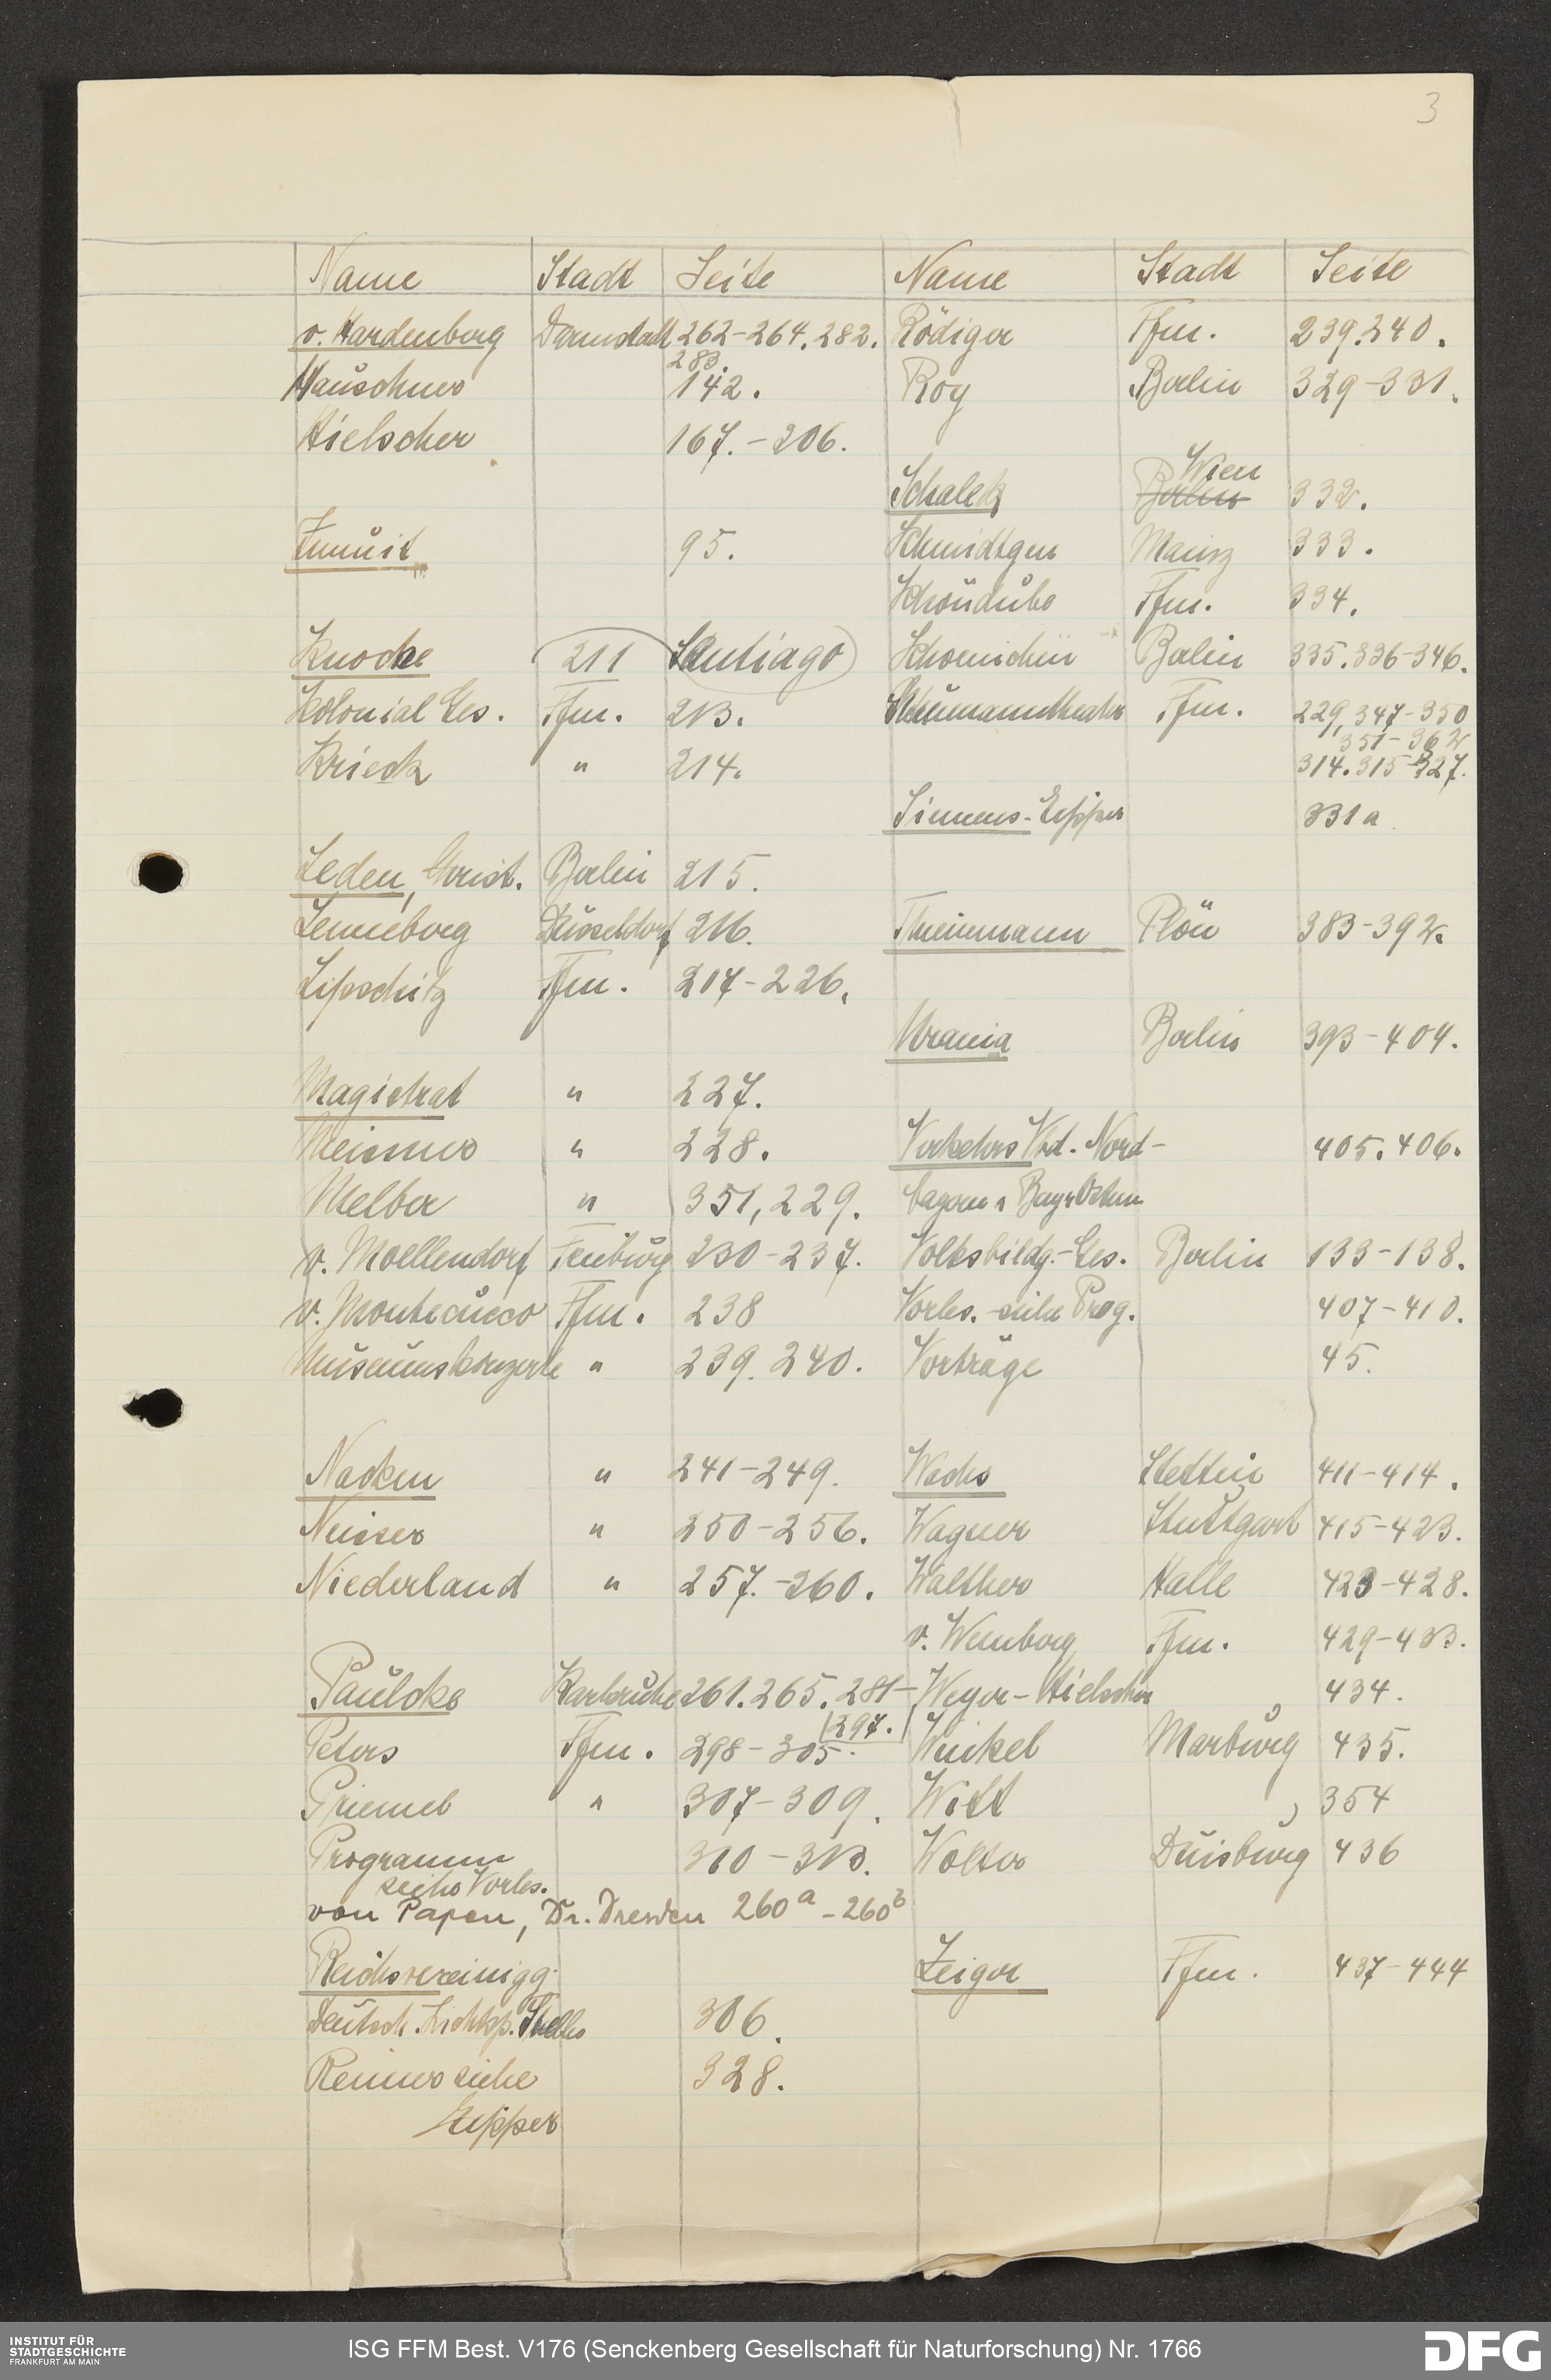 3
Name Stadt Seite Name Stadt Seite
v. Hardenberg Darmstadt 262-264. 282. Rödiger Ffm. 239.240.
283.
Hauschner 142. Roy Berlin 329-331.
Hielscher 167.-206.
Wien
Schalek Berlin 332.
95. Schmidtgen Mainz 333.
Schöndube Ffm. 334.
Knoche 211 Santiago Schoenichen Berlin 335.336-346.
Kolonial Ges. Ffm. 213. Schumanntheater Ffm. 229, 347-350
351-362
Krieck " 214. 314.315-327.
Siemens-Eipper 331a
Leden, Christ. Berlin 215.
Lenneberg Düsseldorf 216. Thienemann Plön 383-392.
Lipschitz Ffm. 217-226.
Urania Berlin 393-404.
Magistrat " 227.
Meissner " 228. Verkehrs Vbd. Nord- 405.406.
Melber " 351, 229. bayern
v. Moellendorf 230-237. Volksbildg.-Ges. Berlin 133-138.
v. Montecucco Ffm. 238 Vorles. siehe Prog. 407-410.
Museumskonzerte " 239. 240. Vorträge 45.
Nacken " 241-249. Wachs Stettin 411-414.
Neisser " 250-256. Wagner Stuttgart 415-423.
Niederland " 257.-260. Walther Halle 423-428.
v. Weinberg Ffm. 429-433.
Paulcke Karlsruhe 261. 265. 281- Weyer-Hielscher 434.
297.
Peters Ffm. 298-305. Winkel Marburg 435.
Priemel " 307-309. Witt 354
Programm 310-313. Wolter Duisburg 436
siehe Vorles.
von Papen, Dr. Dresden 260a-260b
Reichsvereinigg. Zeiger Ffm. 437-444
Deutsch. Lichtsp. Stelle 306.
Renner siehe 328.
Eipper
INSTITUT FÜR
STADTGESCHICHTE
FRANKFURT AM MAIN
ISG FFM Best. V176 (Senckenberg Gesellschaft für Naturforschung) Nr. 1766
DFG